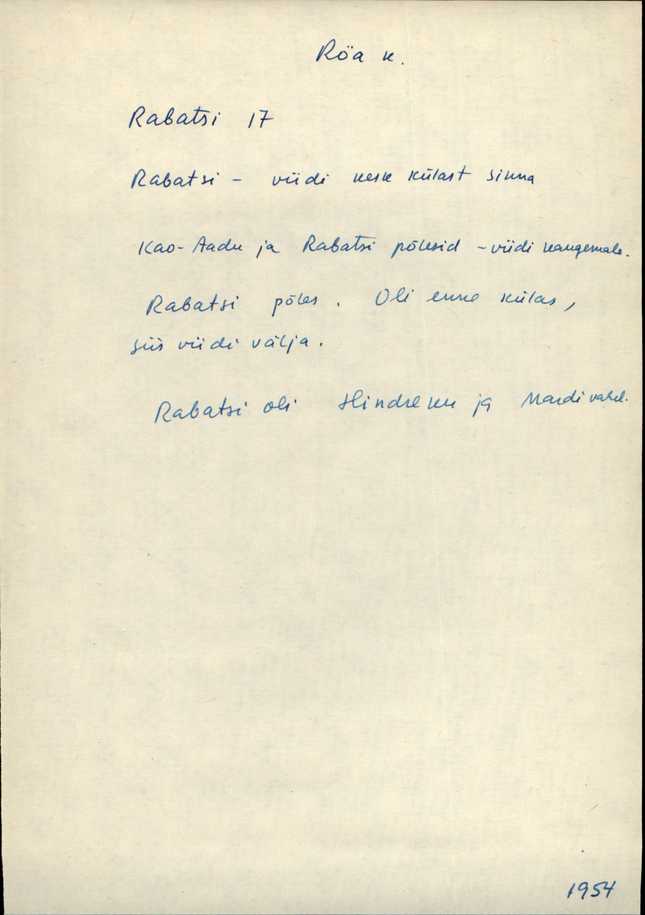 Röa k.
Rabatsi 17
Rabatsi – viidi kesk külast sinna
Kao-Aadu ja Rabatsi põlesid – viidi kaugemale.
Rabatsi põles. Oli enne külas,
siis viidi välja.
Rabatsi oli Hindreku ja Mardi vahel.
1954